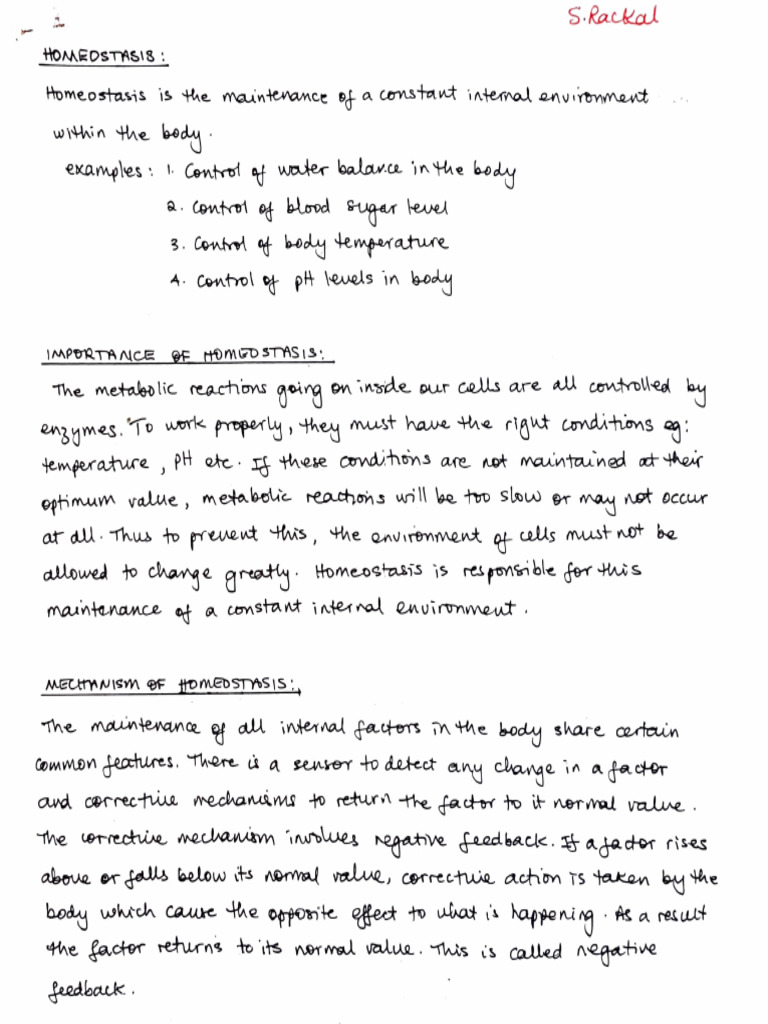 S. Rackal
HOMEOSTASIS:
Homeostasis is the maintenance of a constant internal environment
within the body.
examples: 1. Control of water balance in the body
2. Control of blood sugar level
3. Control of body temperature
4. Control of pH levels in body
IMPORTANCE OF HOMEOSTASIS:
The metabolic reactions going on inside our cells are all controlled by
enzymes. To work properly, they must have the right conditions eg:
temperature, pH etc. If these conditions are not maintained at their
optimum value, metabolic reactions will be too slow or may not occur
at all. Thus to prevent this, the environment of cells must not be
allowed to change greatly. Homeostasis is responsible for this
maintenance of a constant internal environment.
MECHANISM OF HOMEOSTASIS:
The maintenance of all internal factors in the body share certain
common features. There is a sensor to detect any change in a factor
and corrective mechanisms to return the factor to it normal value.
The corrective mechanism involves negative feedback. If a factor rises
above or falls below its normal value, corrective action is taken by the
body which cause the opposite effect to what is happening. As a result
the factor returns to its normal value. This is called negative
feedback.